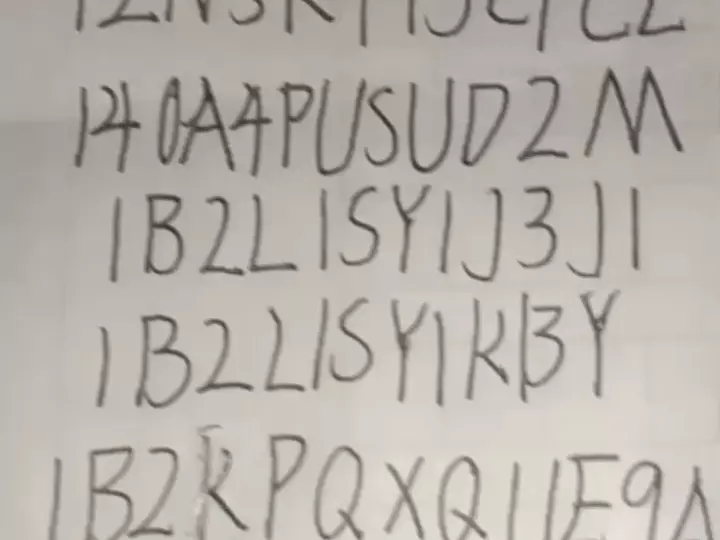 140A4PUSUD2M
1B2L1SY1J3J1
1B2L1SY1KB3Y
1B2KPQXQ11E9A